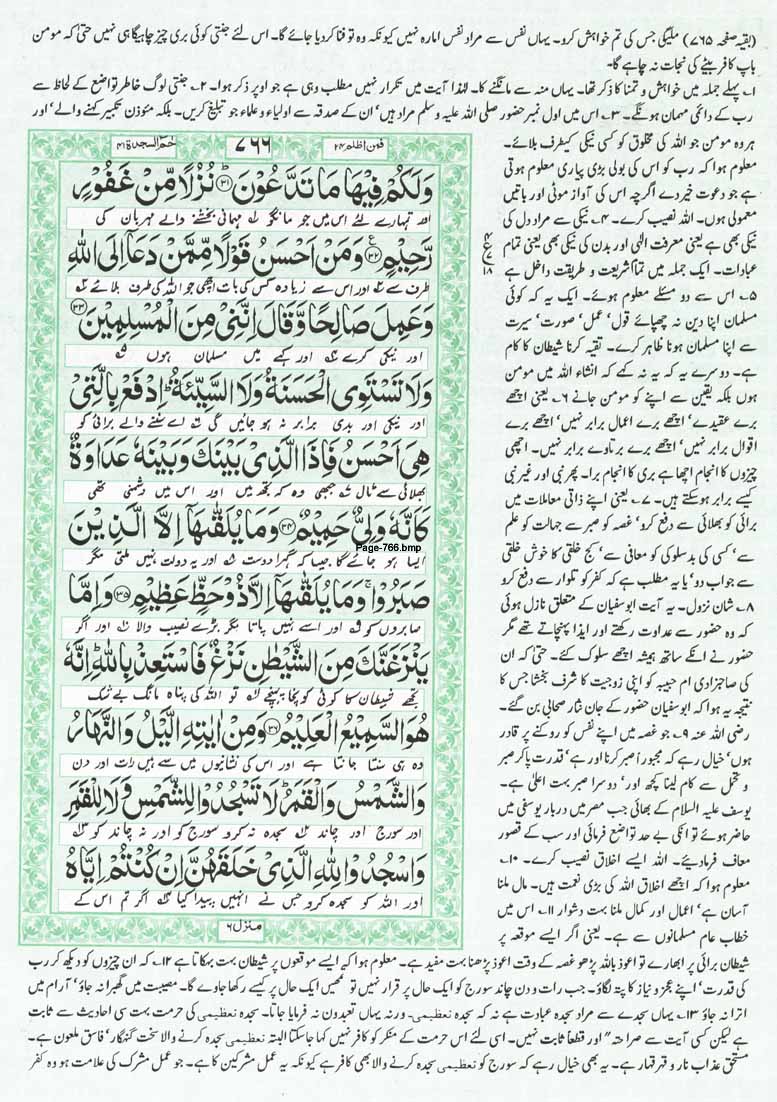 (بقیہ صفحہ ۷۶۵) ملیگی جس کی تم خواہش کرو۔ یہاں نفس سے مراد نفس امارہ نہیں کیونکہ وہ تو فنا کر دیا جائے گا۔ اس لئے جنتی کوئی بری چیز چاہیگا ہی نہیں حتیٰ کہ مومن
باپ کافر بیٹے کی نجات نہ چاہے گا۔
۱۔ پہلے جملہ میں خواہش و تمنا کا ذکر تھا۔ یہاں منہ سے مانگنے کا۔ لہٰذا آیت میں تکرار نہیں مطلب وہی ہے جو اوپر ذکر ہوا۔ ۲۔ جنتی لوگ خاطر تواضع کے لحاظ سے
رب کے دائمی مہمان ہونگے۔ ۳۔ اس میں اول نمبر حضور صلی اللہ علیہ وسلم مراد ہیں' ان کے صدقہ سے اولیاء و علماء جو تبلیغ کریں۔ بلکہ مئوذن تکبیر کہنے والے' اور
ہر وہ مومن جو اللہ کی مخلوق کو کسی نیکی کیطرف بلائے۔
معلوم ہوا کہ رب کو اس کی بولی بڑی پیاری معلوم ہوتی
ہے جو دعوت خیر دے اگرچہ اس کی آواز موٹی اور باتیں
معمولی ہوں۔ اللہ نصیب کرے۔ ۴۔ نیکی سے مراد دل کی
نیکی بھی ہے یعنی معرفت الٰہی اور بدن کی نیکی بھی یعنی تمام
عبادات۔ ایک جملہ میں تماما شریعت و طریقت داخل ہے
۵۔ اس سے دو مسئلے معلوم ہوئے۔ ایک یہ کہ کوئی
مسلمان اپنا دین نہ چھپائے قول' عمل' صورت' سیرت
سے اپنا مسلمان ہونا ظاہر کرے۔ تقیہ کرنا شیطان کا کام
ہے۔ دوسرے یہ کہ یہ نہ کہے کہ انشاء اللہ میں مومن
ہوں بلکہ یقین سے اپنے کو مومن جانے ۶۔ یعنی اچھے
برے عقیدے' اچھے برے اعمال برابر نہیں' اچھے برے
اقوال برابر نہیں' اچھے برے برتاوے برابر نہیں۔ اچھی
چیزوں کا انجام اچھا ہے بری کا انجام برا۔ پھر نبی اور غیر نبی
کیسے برابر ہو سکتے ہیں۔ ۷۔ یعنی اپنے ذاتی معاملات میں
برائی کو بھلائی سے دفع کرو' غصہ کو صبر سے جہالت کو علم
سے' کسی کی بدسلوکی کو معافی سے' کج خلقی کا خوش خلقی
سے جواب دو' یا یہ مطلب ہے کہ کفر کو تلوار سے دفع کرو
۸۔ شان نزول۔ یہ آیت ابوسفیان کے متعلق نازل ہوئی
کہ وہ حضور سے عداوت رکھتے اور ایذا پہنچاتے تھے مگر
حضور نے انکے ساتھ ہمیشہ اچھے سلوک کئے۔ حتیٰ کہ ان
کی صاحبزادی ام حبیبہ کو اپنی زوجیت کا شرف بخشا جس کا
نتیجہ یہ ہوا کہ ابوسفیان حضور کے جان نثار صحابی بن گئے۔
رضی اللہ عنہ ۹۔ جو غصہ میں اپنے نفس کو روکنے پر قادر
ہوں' خیال رہے کہ مجبوراً صبر کرنا اور ہے' قدرت پا کر صبر
و تحمل سے کام لینا کچھ اور' دوسرا صبر بہت اعلیٰ ہے۔
یوسف علیہ السلام کے بھائی جب مصر میں دربار یوسفی میں
حاضر ہوئے تو انکی بے حد تواضع فرمائی اور سب کے قصور
معاف فرما دیئے۔ اللہ ایسے اخلاق نصیب کرے۔ ۱۰۔
معلوم ہوا کہ اچھے اخلاق اللہ کی بڑی نعمت ہیں۔ مال ملنا
آسان ہے' اعمال اور کمال ملنا بہت دشوار ۱۱۔ اس میں
خطاب عام مسلمانوں سے ہے۔ یعنی اگر ایسے موقعہ پر
۴
ع
۱۸
حٰم السجدة ۴۱
۷۶۶
فمن اظلم ۲۴
وَلَكُمْ فِيْهَا مَا تَدَّعُوْنَ ﴿۳۱﴾ نُزُلًا مِّنْ غَفُوْرٍ
اور تمہارے لئے اس میں جو مانگو لہ مہمانی بخشنے والے مہربان کی
رَّحِيْمٍ ﴿۳۲﴾ وَمَنْ اَحْسَنُ قَوْلًا مِّمَّنْ دَعَا اِلَى اللّٰهِ
طرف سے ۲ اور اس سے زیادہ کس کی بات اچھی جو اللہ کی طرف بلائے ۳
وَعَمِلَ صَالِحًا وَّقَالَ اِنَّنِيْ مِنَ الْمُسْلِمِيْنَ ﴿۳۳﴾
اور نیکی کرے ۴ اور کہے میں مسلمان ہوں ۵
وَلَا تَسْتَوِى الْحَسَنَةُ وَلَا السَّيِّئَةُ ۭ اِدْفَعْ بِالَّتِيْ
اور نیکی اور بدی برابر نہ ہو جائیں گی ۶ اے سننے والے برائی کو
هِيَ اَحْسَنُ فَاِذَا الَّذِيْ بَيْنَكَ وَبَيْنَهٗ عَدَاوَةٌ
بھلائی سے ٹال ۷ جبھی وہ کہ تجھ میں اور اس میں دشمنی تھی
كَاَنَّهٗ وَلِيٌّ حَمِيْمٌ ﴿۳۴﴾ وَمَا يُلَقّٰىهَآ اِلَّا الَّذِيْنَ
Page-766.bmp
ایسا ہو جائے گا جیسا کہ گہرا دوست ۸ اور یہ دولت نہیں ملتی مگر
صَبَرُوْا ۚ وَمَا يُلَقّٰىهَآ اِلَّا ذُوْ حَظٍّ عَظِيْمٍ ﴿۳۵﴾ وَاِمَّا
صابروں کو ۹ اور اسے نہیں پاتا مگر بڑے نصیب والا ۱۰ اور اگر
يَنْزَغَنَّكَ مِنَ الشَّيْطٰنِ نَزْغٌ فَاسْتَعِذْ بِاللّٰهِ ۭ اِنَّهٗ
تجھے شیطان کا کوئی کونچا پہنچے ۱۱ تو اللہ کی پناہ مانگ بے شک
هُوَ السَّمِيْعُ الْعَلِيْمُ ﴿۳۶﴾ وَمِنْ اٰيٰتِهِ الَّيْلُ وَالنَّهَارُ
وہ ہی سنتا جانتا ہے اور اس کی نشانیوں میں سے ہیں رات اور دن
وَالشَّمْسُ وَالْقَمَرُ ۭ لَا تَسْجُدُوْا لِلشَّمْسِ وَلَا لِلْقَمَرِ
اور سورج اور چاند ۱۲ سجدہ نہ کرو سورج کو اور نہ چاند کو ۱۳
وَاسْجُدُوْا لِلّٰهِ الَّذِيْ خَلَقَهُنَّ اِنْ كُنْتُمْ اِيَّاهُ
اور اللہ کو سجدہ کرو جس نے انہیں پیدا کیا ۱۴ اگر تم اس کے
منزل ۶
شیطان برائی پر ابھارے تو اعوذ باللہ پڑھو غصہ کے وقت اعوذ پڑھنا بہت مفید ہے۔ معلوم ہوا کہ ایسے موقعوں پر شیطان بہت بہکاتا ہے ۱۲۔ کہ ان چیزوں کو دیکھ کر رب
کی قدرت' اپنے عجز و نیاز کا پتہ لگاؤ۔ جب رات و دن چاند سورج کو ایک حال پر قرار نہیں تو تمھیں ایک حال پر کیسے رکھا جاوے گا۔ مصیبت میں گھبرا نہ جاؤ' آرام میں
اترا نہ جاؤ ۱۳۔ یہاں سجدے سے مراد سجدہ عبادت ہے نہ کہ سجدہ تعظیمی۔ ورنہ یہاں تعبدون نہ فرمایا جاتا۔ سجدہ تعظیمی کی حرمت بہت سی احادیث سے ثابت
ہے لیکن کسی آیت سے صراحتہ" اور قطعاً ثابت نہیں۔ اسی لئے اس حرمت کے منکر کو کافر نہیں کہا جا سکتا البتہ تعظیمی سجدہ کرنے والا سخت گنہگار' فاسق ملعون ہے۔
مستحق عذاب نار و قہر قہار ہے۔ یہ بھی خیال رہے کہ سورج کو تعظیمی سجدہ کرنے والا بھی کافر ہے کیونکہ یہ عمل مشرکین کا ہے۔ جو عمل مشرک کی علامت ہو وہ کفر